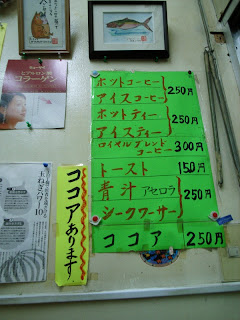 ヒアルロン酸
コラーゲン
ホットコーヒー
アイスコーヒー
250円
ホットティー
アイスティー
250円
ロイヤルブレンド
コーヒー
300円
トースト
150円
青汁 アセロラ
シークワーサー
250円
ココア
250円
ココアあります!
玉ねぎパワー10